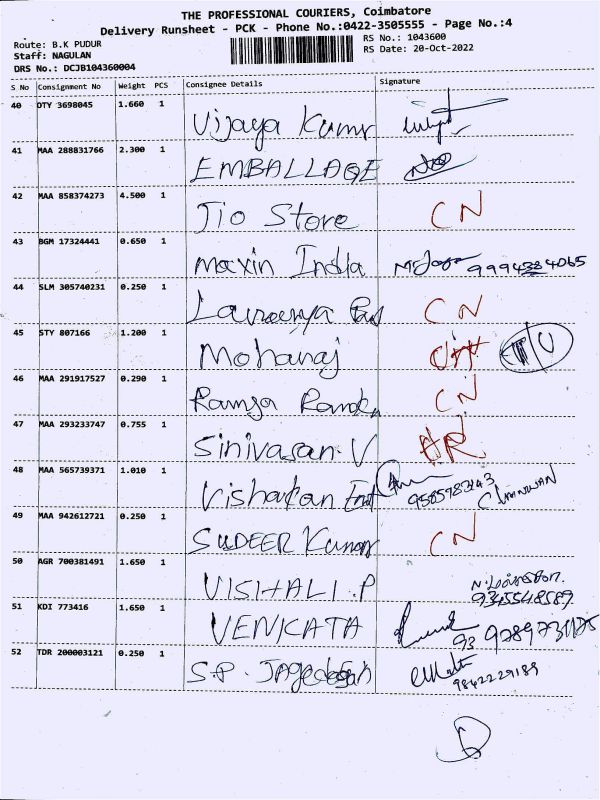 THE PROFESSIONAL COURIERS, Coimbatore
Delivery Runsheet - PCK - Phone No.:0422-3505555 - Page No.:4
Route: B.K PUDUR
RS No.: 1043600
Staff: NAGULAN
RS Date: 20-Oct-2022
DRS No.: DCJB104360004
S No Consignment No Weight PCS Consignee Details Signature
40 DTY 3698045 1.660 1 Vijaya Kumar
41 MAA 288831766 2.300 1 EMBALLAGE
42 MAA 858374273 4.500 1 Jio Store CN
43 BGM 17324441 0.650 1 Maxin India 9994384065
44 SLM 305740231 0.250 1 CN
45 STY 807166 1.200 1 Mohanaj
46 MAA 291917527 0.290 1 CN
47 MAA 293233747 0.755 1 Sinivasan V
48 MAA 565739371 1.010 1 Vishakan
49 MAA 942612721 0.250 1 SUDEER Kumar CN
50 AGR 700381491 1.650 1 VISHALI.P
9345548589
51 KDI 773416 1.650 1 VENKATA
52 TDR 200003121 0.250 1 S.P.
9842229189